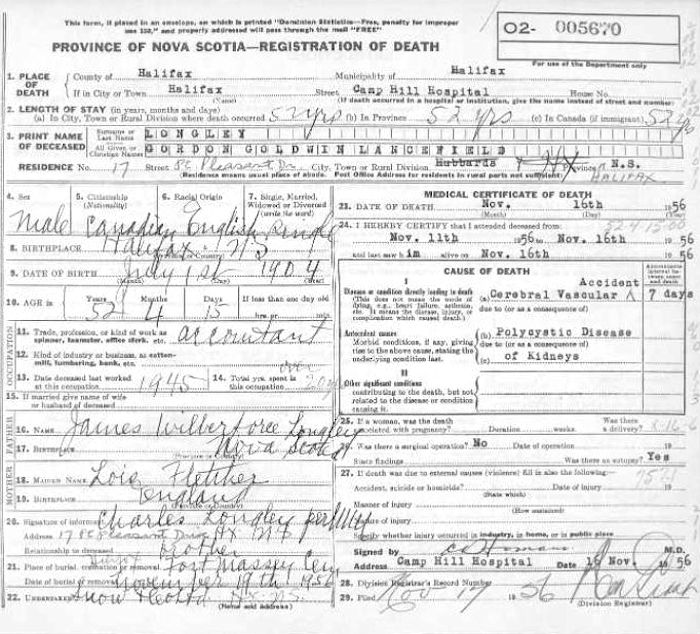 This form, if placed in an envelope, on which is printed "Dominion Statistics—Free, penalty for improper
use $50," and properly addressed will pass through the mail "FREE"
O2- 005670
PROVINCE OF NOVA SCOTIA—REGISTRATION OF DEATH
For use of the Department only
1. PLACE OF DEATH
County of Halifax Municipality of Halifax
If in City or Town Halifax Street Camp Hill Hospital House No.
(Name) (If death occurred in a hospital or institution, give the name instead of street and number)
2. LENGTH OF STAY (in years, months and days)
(a) In City, Town or Rural Division where death occurred 52 yrs (b) In Province 52 yrs (c) In Canada (if immigrant) 52 yrs
3. PRINT NAME OF DECEASED
Surname or Last Name LONGLEY
All Given or Christian Names GORDON GOLDWIN LANCEFIELD
RESIDENCE No. 17 St. Pleasant Dr. City, Town or Rural Division Hubbards HX Province N.S.
HALIFAX
(Residence means usual place of abode. Post Office Address for residents in rural parts not sufficient)
4. Sex Male
5. Citizenship (Nationality) Canadian
6. Racial Origin English
7. Single, Married, Widowed or Divorced (write the word) Single
8. BIRTHPLACE Halifax N.S.
(Province or Country)
9. DATE OF BIRTH July 1st 1904
(Month) (Day) (Year)
10. AGE in Years 52 Months 4 Days 15 If less than one day old
hrs. or min.
OCCUPATION
11. Trade, profession, or kind of work as spinner, teamster, office clerk, etc. accountant
12. Kind of industry or business, as cotton-mill, lumbering, bank, etc.
13. Date deceased last worked at this occupation 1945
14. Total yrs. spent in this occupation over 20 yrs
15. If married give name of wife or husband of deceased
FATHER
16. NAME James Wilberforce Longley
17. BIRTHPLACE Nova Scotia
(Province or Country)
MOTHER
18. MAIDEN NAME Lois Fletcher
19. BIRTHPLACE England
(Province or Country)
20. Signature of informant Charles Longley per
Address 17 St Pleasant Drive Hx. N.S.
Relationship to deceased Brother
21. Place of burial, cremation or removal Fort Massey Cem
Date of burial or removal November 19th 1956
22. UNDERTAKER Snow & Co Ltd Hx. N.S.
(Name and Address)
MEDICAL CERTIFICATE OF DEATH
23. DATE OF DEATH Nov. 16th 1956
(Month) (Day) (Year)
24. I HEREBY CERTIFY that I attended deceased from:
Nov. 11th 1956 to Nov. 16th 1956
and last saw him alive on Nov. 16th 1956
CAUSE OF DEATH
Approximate interval between onset and death
I
Disease or condition directly leading to death
(This does not mean the mode of dying, e.g., heart failure, asthenia, etc. It means the disease, injury, or complication which caused death.)
(a) Cerebral Vascular Accident 7 days
due to (or as a consequence of)
Antecedent causes
Morbid conditions, if any, giving rise to the above cause, stating the underlying condition last.
(b) Polycystic Disease
due to (or as a consequence of)
(c) of Kidneys
II
Other significant conditions
contributing to the death, but not related to the disease or condition causing it.
25. If a woman, was the death associated with pregnancy? Duration weeks. Was there a delivery?
26. Was there a surgical operation? No Date of operation 19
State findings Was there an autopsy? Yes
27. If death was due to external causes (violence) fill in also the following:—
Accident, suicide or homicide? Date of injury 19
(State which)
Manner of injury
(How sustained)
Nature of injury
Specify whether injury occurred in industry, in home, or in public place
Signed by M.D.
Address Camp Hill Hospital Date 16 Nov. 1956
28. Division Registrar's Record Number
29. Filed Nov 17 1956
(Division Registrar)